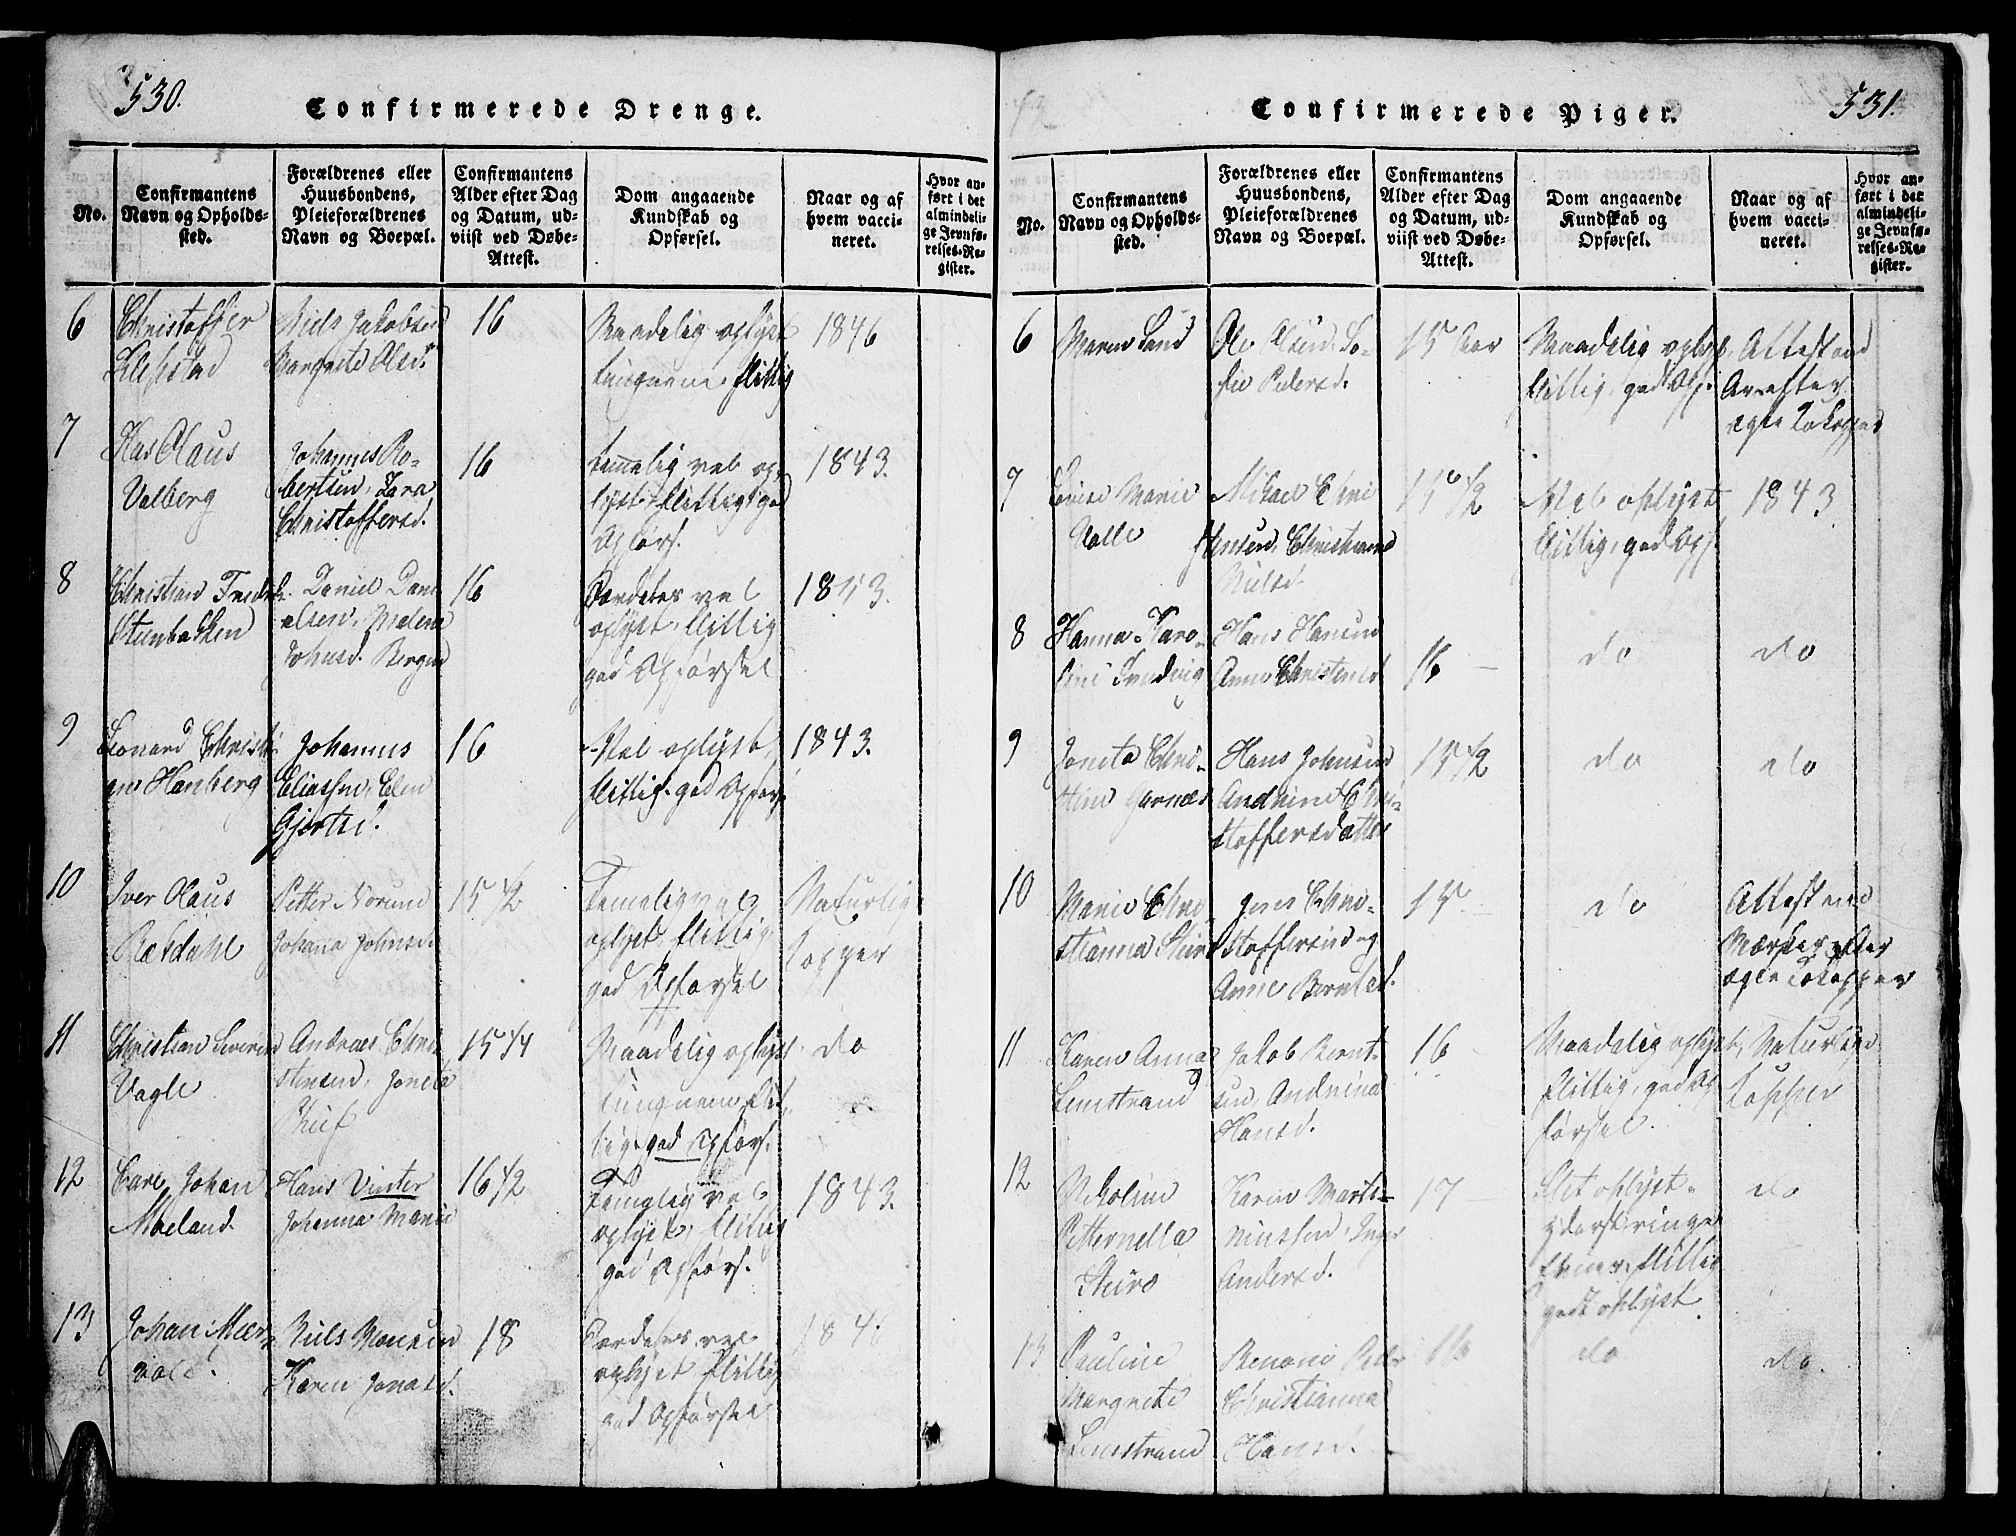 530.
Confirmerede Drenge.
No.
Confirmantens
Navn og Opholds-
sted.
Forældrenes eller
Huusbondens,
Pleieforældrenes
Navn og Boepæl.
Confirmantens
Alder efter Dag
og Datum, ud-
viist ved Døbe-
Attest.
Dom angaaende
Kundskab og
Opførsel.
Naar og af
hvem vacci-
neret.
Hvor an-
ført i det
almindeli-
ge Jevnfø-
relses-Re-
gister.
6
Christoffer
Klepstad
Niels Jakobsen
Margrete Olsd.
16
Maadelig oplyst
flittig
1846
7
Olaus
Valberg
Johannes Ro-
bertsen, Lara
Christoffersd.
16
temelig vel op-
lyst flittig god
Opførs.
1843.
8
Christian Fredrik
Steenbakken
Daniel Dani
elsen, Malena
Johnsd. Bergen
16
vel
oplyst, flittig
god Opførsel
1853.
9
Leonard Christi-
an Hanberg
Johannes
Eliassen, Elen
Gjertsd.
16
Vel oplyst,
flittig. god Opførs
1843.
10
Iver Olaus
Petter Norum
Johana Johnsd.
15 1/2
Temelig vel
oplyst, flittig
god Opførsel
Naturlig
Copper
11
Christian Severin
Vagle
Andreas Chri
stensen, Joneta
15 1/4
Maadelig oplyst
flit-
tig. god Opførs.
do
12
Carl Johan
Moeland.
Hans Vinter
Johanna Marie
16 1/2
Temelig vel
oplyst, flittig
god Opførs.
1843.
13
Johan Mær-
vold.
Niels Monsen
Karen Jonasd.
18
vel
oplyst flittig
god Opførsel
531.
Confirmerede Piger.
No.
Confirmantens
Navn og Opholds-
sted.
Forældrenes eller
Huusbondens,
Pleieforældrenes
Navn og Boepæl.
Confirmantens
Alder efter Dag
og Datum, ud-
viist ved Døbe-
Attest.
Dom angaaende
Kundskab og
Opførsel.
Naar og af
hvem vacci-
neret.
Hvor an-
ført i det
almindeli-
ge Jevnfø-
relses-Re-
gister.
6
Maren Sand
Ole Olsen, So-
fie Pedersd.
15 Aar
Maadelig oplyst,
flittig, god Opf.
Attest om
Ar efter
ægte Kokopper
7
Marie
Valle
Mikael Chri
stensen, Christianna
Nielsd
15 1/2
Vel oplyst
flittig, god Opf.
1843
8
Hanna Karo-
line Fredvig
Hans Hansen
Anne Christensd
16
do
do
9
Joneta Chri-
stine Gornæs
Hans Johnsen
Andrine Chri-
stoffersdatter
15 1/2
do
do
10
Marie Chri-
stianna Steiro
Jens Chri-
stoffersen og
Anne Berntsd.
15
do
Attest om
Mærker efter
ægte Kokopper
11
Karen Anna
Lenstrand
Jakob Bernt-
sen, Andrina
Hansd.
16
Maadelig oplyst,
flittig, god Op-
førsel.
Naturlige
Kopper
12
Nikoline
Petternelle
Steiro
Karen Marti-
niussen, Inger
Andersd.
17
Slet oplyst
yderst ringe
Evner, flittig
godt oplyst
do
13
Pauline
Margrete
Lenstrand
Benoni
Christianna
Hansd.
16
do
do.